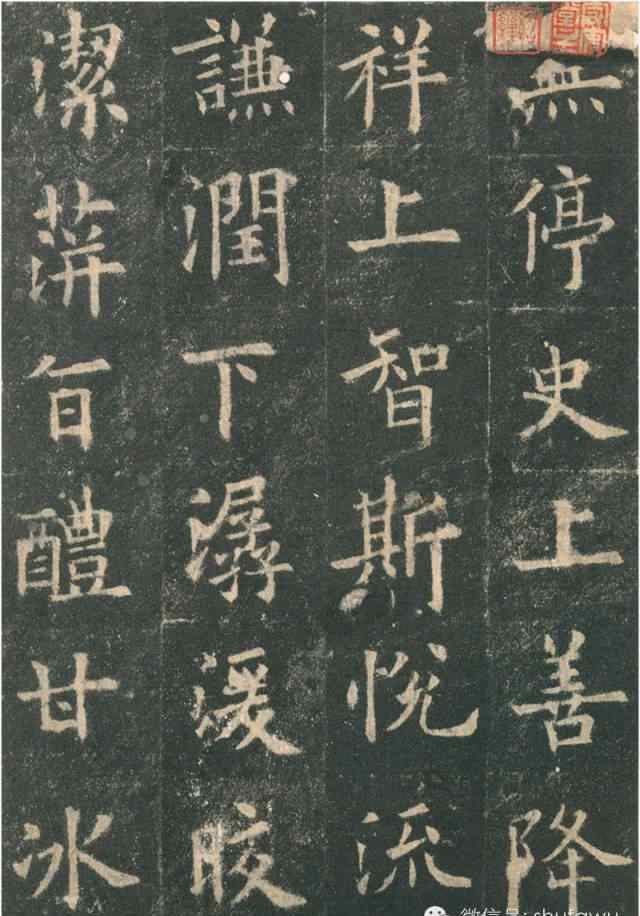 無停史上善降
祥上智斯悅流
謙潤下潺湲晈
潔蓱旨醴甘冰
微信号: shufawu